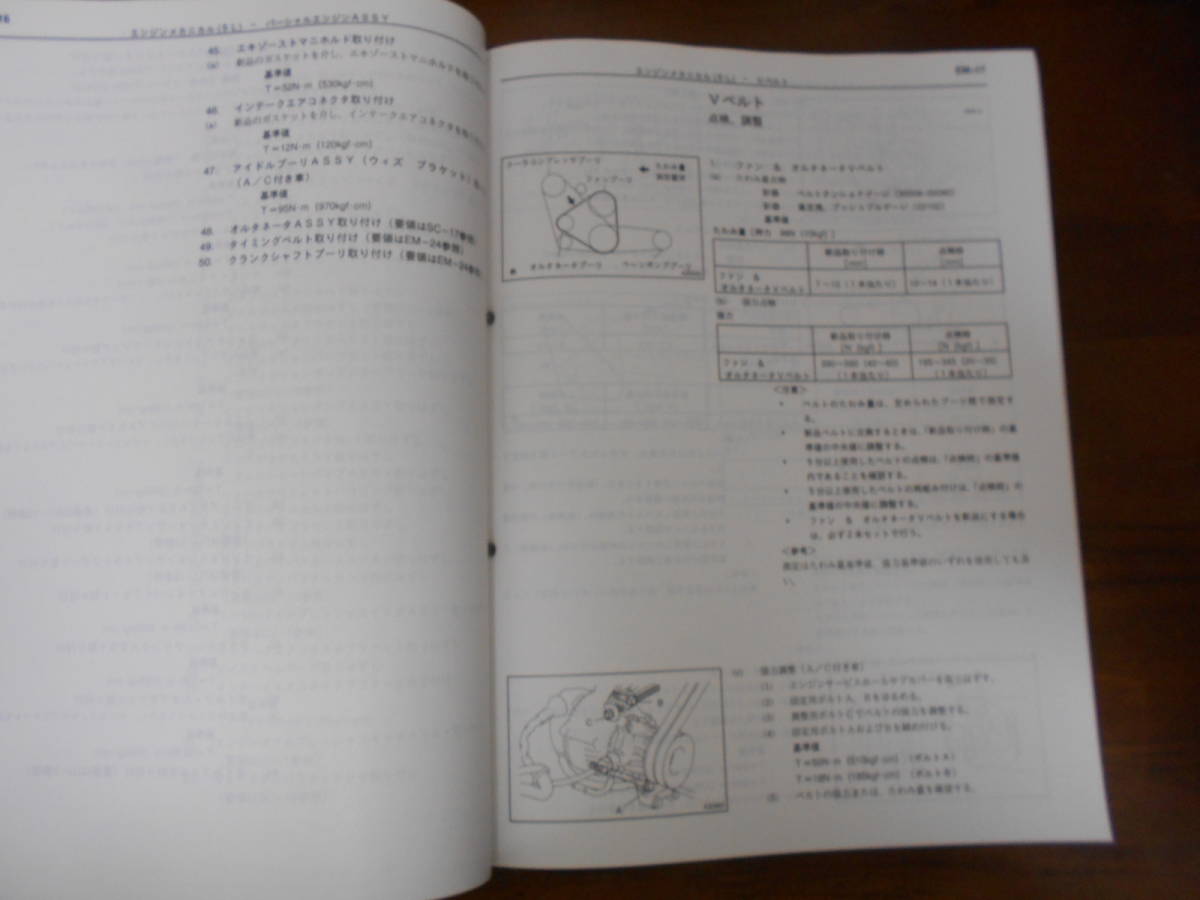 16
エンジンメカニカル(5L) － パーシャルエンジンASSY
45. エキゾーストマニホルド取り付け
(a) 新品のガスケットを介し、エキゾーストマニホルドを
基準値
T=52N·m {530kgf·cm}
46. インテークエアコネクタ取り付け
(a) 新品のガスケットを介し、インテークエアコネクタを
基準値
T=12N·m {120kgf·cm}
47. アイドルプーリASSY(ウィズ ブラケット)
(A/C付き車)
基準値
T=95N·m {970kgf·cm}
48. オルタネータASSY取り付け(要領はSC-17参照)
49. タイミングベルト取り付け(要領はEM-24参照)
50. クランクシャフトプーリ取り付け(要領はEM-24参照)
エンジンメカニカル(5L) － Vベルト
Vベルト
点検、調整
クーラコンプレッサプーリ
たわみ量
測定箇所
ファンプーリ
オルタネータプーリ
ベーンポンププーリ
1. ファン & オルタネータVベルト
(a) たわみ量点検
計器 ベルトテンションゲージ
計器 プッシュプルゲージ
基準値
たわみ量 [押力 98N {10kgf}]
新品取り付け時
[mm]
点検時
[mm]
ファン &
オルタネータVベルト
7～10 (1本当たり)
10～14 (1本当たり)
(b) 張力点検
張力
新品取り付け時
[N {kgf}]
点検時
[N {kgf}]
ファン &
オルタネータVベルト
(1本当たり)
(1本当たり)
<注意>
• ベルトのたわみ量は、定められたプーリ間で測定す
る。
• 新品ベルトに交換するときは、「新品取り付け時」の基
準値の中央値に調整する。
• 5分以上使用したベルトの点検は、「点検時」の基準値
内であることを確認する。
• 5分以上使用したベルトの再組み付けは、「点検時」の
基準値の中央値に調整する。
• ファン & オルタネータVベルトを新品にする場合
は、必ず2本セットで行う。
<参考>
測定はたわみ量基準値、張力基準値のいずれを使用しても良
い。
C
B
A
(c) 張力調整 (A/C付き車)
(1) エンジンサービスホールサブカバーを取りはずす。
(2) 固定用ボルトA、Bをゆるめる。
(3) 調整用ボルトCでベルトの張力を調整する。
(4) 固定用ボルトAおよびBを締め付ける。
基準値
T=50N·m {510kgf·cm} (ボルトA)
T=18N·m {185kgf·cm} (ボルトB)
(5) ベルトの張力または、たわみ量を確認する。